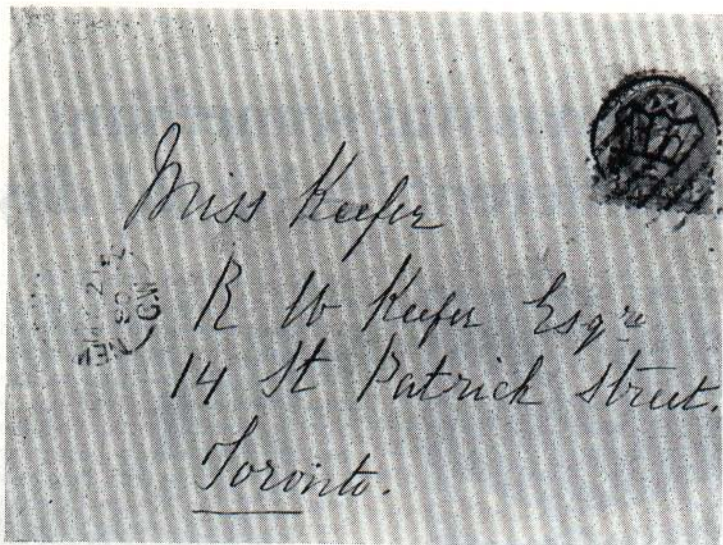 Miss Keefer
R W Keefer Esqre
14 St Patrick Street.
Toronto.